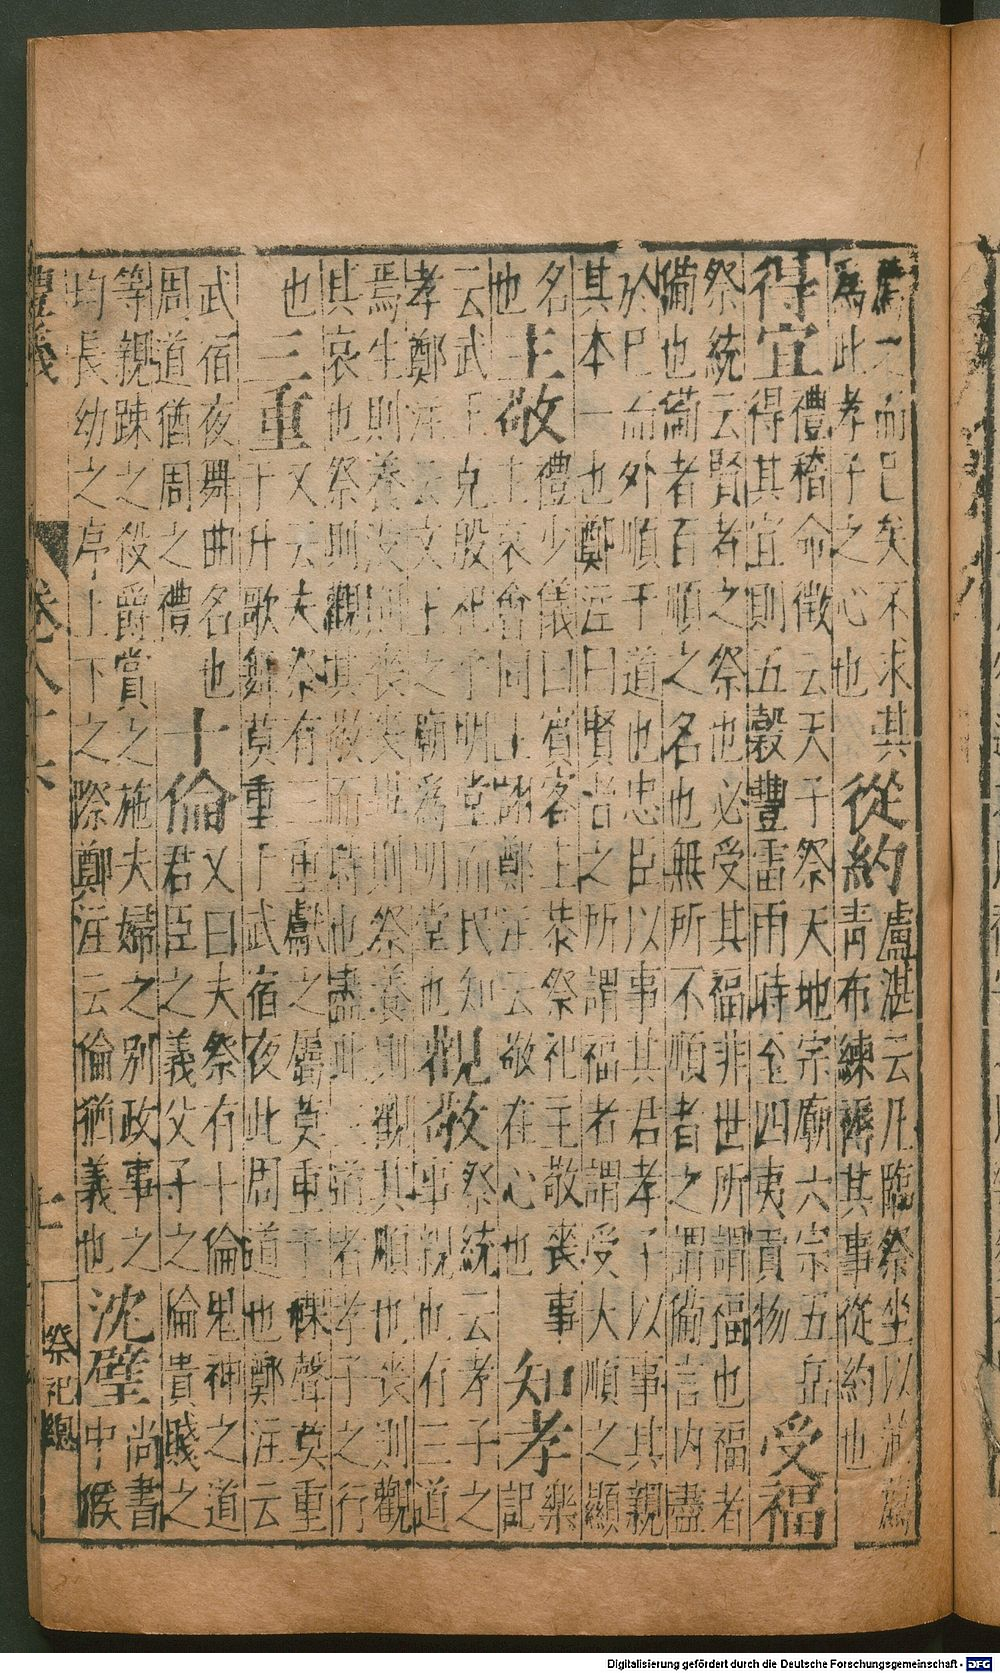 薦之而已矣不求其
為此孝子之心也
從約
盧湛云凡臨祭坐以滿薦
青布練褥其事從約也
得宜
禮稽命徵云天子祭天地宗廟六宗五岳
得其宜則五穀豐雷雨時至四夷貢物
受福
祭統云賢者之祭也必受其福非世所謂福也福者
備也備者百順之名也無所不順者之謂備言內盡
於巳而外順于道也忠臣以事其君孝子以事其親
其本一也鄭注曰賢者之所謂福者謂受大順之顯
名
也
主敬
禮少儀曰賓客主恭祭祀主敬喪事
主哀會同主詡鄭注云敬在心也
知孝
樂
記
云武王克殷祀于明堂而民知
孝鄭注云文王之廟為明堂也
觀敬
祭統云孝子之
事親也有三道
焉生則養沒則喪喪畢則祭養則觀其順也喪則觀
其哀也祭則觀其敬而時也盡此三道者孝子之行
也
三重
又云夫祭有三重獻之屬莫重于祼聲莫重
于升歌舞莫重于武宿夜此周道也鄭注云
武宿夜舞曲名也
周道猶周之禮
十倫
又曰夫祭有十倫鬼神之道
君臣之義父子之倫貴賤之
等親踈之殺爵賞之施夫婦之別政事之
均長幼之序上下之際鄭注云倫猶義也
沈璧
尚書
中候
禮義
卷八十六
七
祭祀總
Digitalisierung gefördert durch die Deutsche Forschungsgemeinschaft - DFG